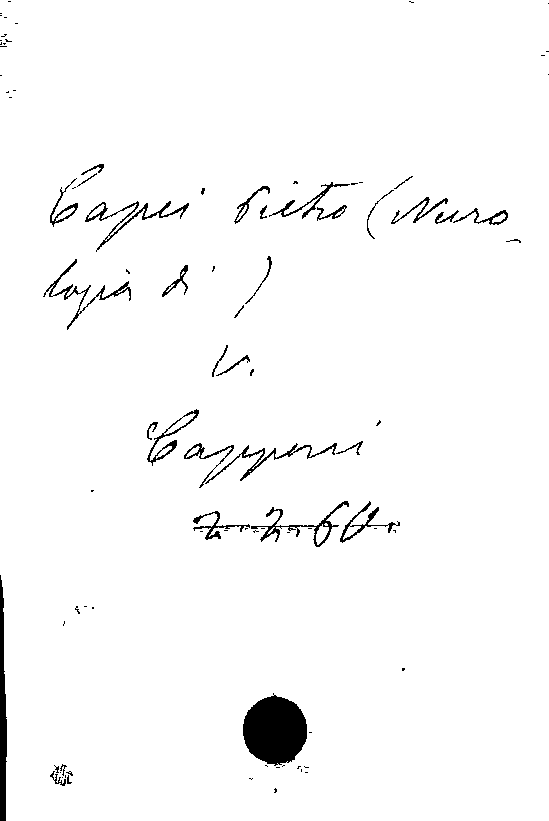 Capei Pietro (Necro-
logia di )
V.
Capponi
2. 2. 60.